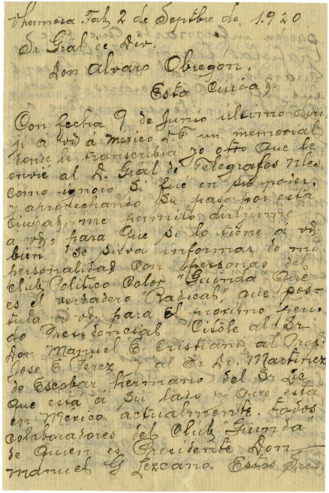 Vhermosa Tab, 2 de Septbre de 1920
Sr Gral de Div.
Don Alvaro Obregon.
Esta Ciudad.
Con fecha 9 de Junio último diri-
jí a vd a Mexico D.F. un memorial
donde le transcribia yo otro que le
envié al D. Gral de Telegrafos Nles
como ignoro si fue en su poder,
y aprovechando su paso por esta
Ciudad, me permito dirijirme
a vd, para que si lo tiene a
bien se sirva informar de mi
personalidad con personas del
Club Politico Color "Guinda" que
es el verdadero Radical, que pos-
tula a vd para el proximo perio-
do Presidencial. Citole al Sr
Don Manuel E. Cristiani al Prof.
José E. Perez al Sr Dr. Martinez
de Escobar hermano del Sr Lic
que está a su lado y que está
en Mexico actualmente. todos
colaboradores del Club "Guinda"
de quien es Presidente Don
Manuel G Lezcano. Estos Sres